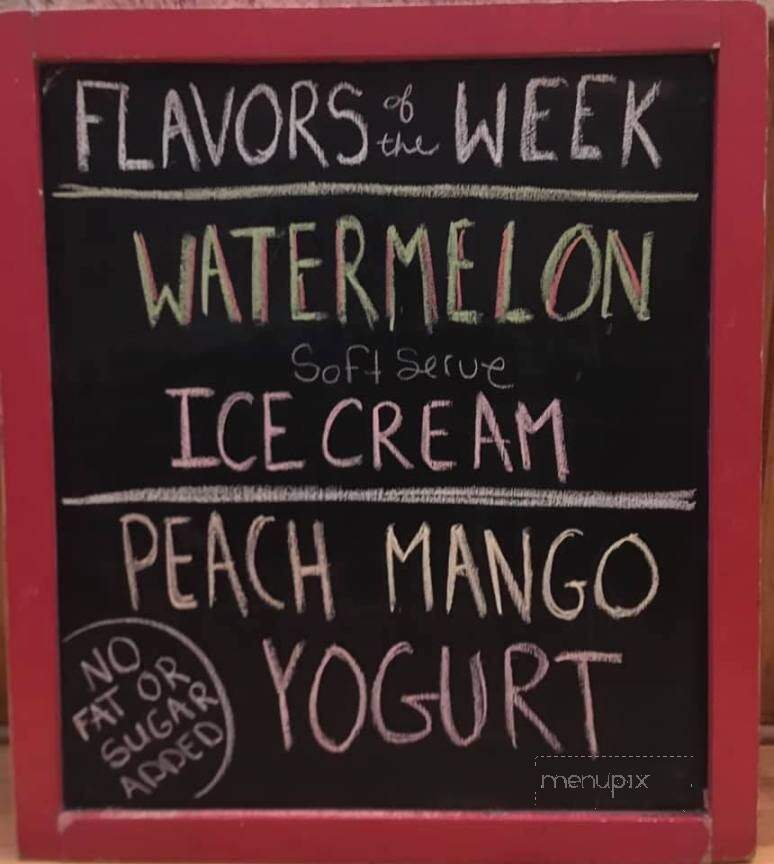 FLAVORS of the WEEK
WATERMELON
Soft Serve
ICE CREAM
PEACH MANGO
YOGURT
NO
FAT OR
SUGAR
ADDED
menupix